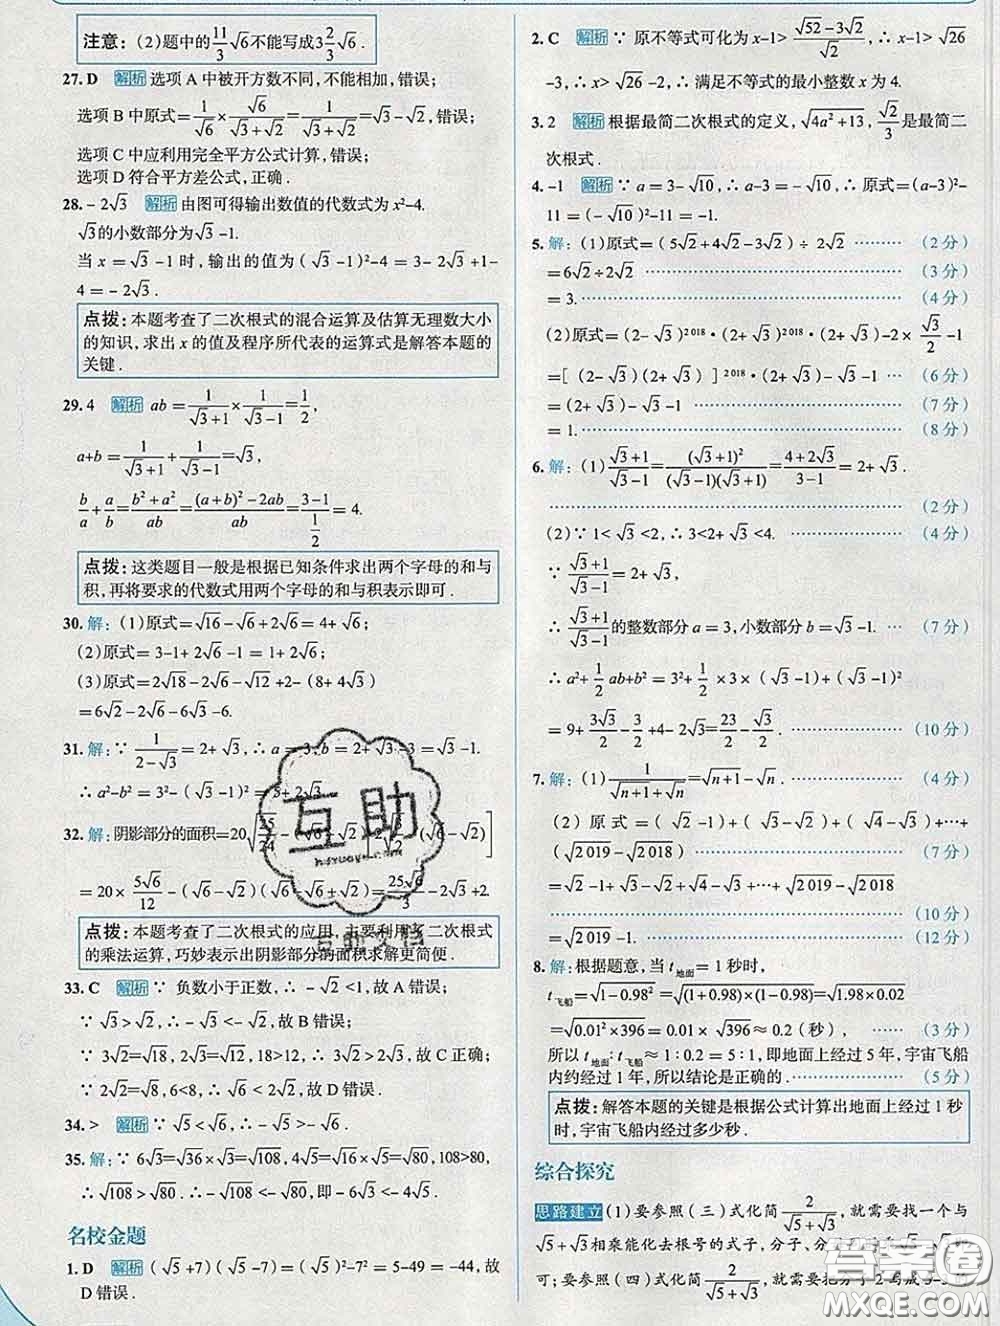 注意：(2)题中的11/3√6不能写成3 2/3√6.
27. D 解析 选项 A 中被开方数不同,不能相加,错误;
选项 B 中原式=1/√6×√6/(√3+√2)=1/(√3+√2)=√3-√2,错误;
选项 C 中应利用完全平方公式计算,错误;
选项 D 符合平方差公式,正确.
28. -2√3 解析 由图可得输出数值的代数式为 x²-4.
√3的小数部分为√3-1.
当 x=√3-1 时,输出的值为(√3-1)²-4=3-2√3+1-
4=-2√3.
点拨：本题考查了二次根式的混合运算及估算无理数大小
的知识,求出 x 的值及程序所代表的运算式是解答本题的
关键.
29. 4 解析 ab=1/(√3+1)×1/(√3-1)=1/2,
a+b=1/(√3+1)+1/(√3-1)=√3,
b/a+a/b=(b²+a²)/ab=((a+b)²-2ab)/ab=(3-1)/(1/2)=4.
点拨：这类题目一般是根据已知条件求出两个字母的和与
积,再将要求的代数式用两个字母的和与积表示即可.
30. 解：(1)原式=√16-√6+2√6=4+√6;
(2)原式=3-1+2√6-√6=2+√6;
(3)原式=2√18-2√6-√12+2-(8+4√3)
=6√2-2√6-6√3-6.
31. 解：∵1/(2-√3)=2+√3,∴a=3,b=2+√3-3=√3-1.
∴a²-b²=3²-(√3-1)²=5+2√3.
32. 解：阴影部分的面积=20√(25/24)-(√6-√2)
(√6-√2)]
=20×5√6/12-(√6-√2)(√6+√2)=25√6/3-2√3+2.
点拨：本题考查了二次根式的应用,主要利用了二次根式
的乘法运算,巧妙表示出阴影部分的面积求解更简便.
33. C 解析 ∵负数小于正数,∴-√2<1,故 A 错误;
∵√3>√2,∴-√3<-√2,故 B 错误;
∵3√2=√18,2√3=√12,18>12,∴故 C 正确;
∵2√2=√8,6<8,∴√6<2√2,故 D 错误.
34. > 解析 ∵√5<√6,∴-√5>-√6.
35. 解：∵6√3=√36×√3=√108,4√5=√16×√5=√80,108>80,
∴√108>√80.∴-√108<-√80,即-6√3<-4√5.
名校金题
1. D 解析 (√5+7)(√5-7)=(√5)²-7²=5-49=-44,故
D 错误.
2. C 解析 ∵原不等式可化为 x-1>(√52-3√2)/√2,∴x-1>√26
-3,∴x>√26-2,∴满足不等式的最小整数 x 为 4.
3. 2 解析 根据最简二次根式的定义,√(4a²+13),√2/3是最简二
次根式.
4. -1 解析 ∵a=3-√10,∴a-3=-√10,∴原式=(a-3)²-
11=(-√10)²-11=-1.
5. 解：(1)原式=(5√2+4√2-3√2)÷2√2 ……… (2分)
=6√2÷2√2 ……… (3分)
=3. ……… (4分)
(2)原式=(2-√3)²⁰¹⁸·(2+√3)²⁰¹⁸·(2+√3)-2×√3/2-1
=[(2-√3)(2+√3)]²⁰¹⁸·(2+√3)-√3-1 … (6分)
=(2+√3)-√3-1 ……… (7分)
=1. ……… (8分)
6. 解：(1)(√3+1)/(√3-1)=(√3+1)²/((√3-1)(√3+1))=(4+2√3)/(3-1)=2+√3.
……… (2分)
(2)∵1<√3<2,∴3<2+√3<4. ……… (4分)
∵(√3+1)/(√3-1)=2+√3,
∴(√3+1)/(√3-1)的整数部分 a=3,小数部分 b=√3-1. … (7分)
∴a²+1/2ab+b²=3²+1/2×3×(√3-1)+(√3-1)²
=9+3√3/2-3/2+4-2√3=23/2-√3/2. ……… (10分)
7. 解：(1)1/(√(n+1)+√n)=√(n+1)-√n. ……… (4分)
(2)原式=(√2-1)+(√3-√2)+(√4-√3)+…+
(√2019-√2018) ……… (7分)
=√2-1+√3-√2+√4-√3+…+√2019-√2018
……… (10分)
=√2019-1. ……… (12分)
8. 解：根据题意,当 t地面=1 秒时,
t飞船=√(1-0.98²)=√((1+0.98)×(1-0.98))=√(1.98×0.02)
=√(0.01²×396)=0.01×√396≈0.2(秒), …… (3分)
所以 t地面∶t飞船≈1∶0.2=5∶1,即地面上经过 5 年,宇宙飞船
内约经过 1 年,所以结论是正确的. ……… (5分)
点拨：解答本题的关键是根据公式计算出地面上经过 1 秒
时,宇宙飞船内经过多少秒.
综合探究
思路建立 (1)要参照(三)式化简2/(√5+√3),就需要找一个与
√5+√3相乘能化去根号的式子,分子、分
可;要参照(四)式化简2/(√5+√3),就需要把分子2写成5-3
互助
互助文档
答案圈
MXQE.COM